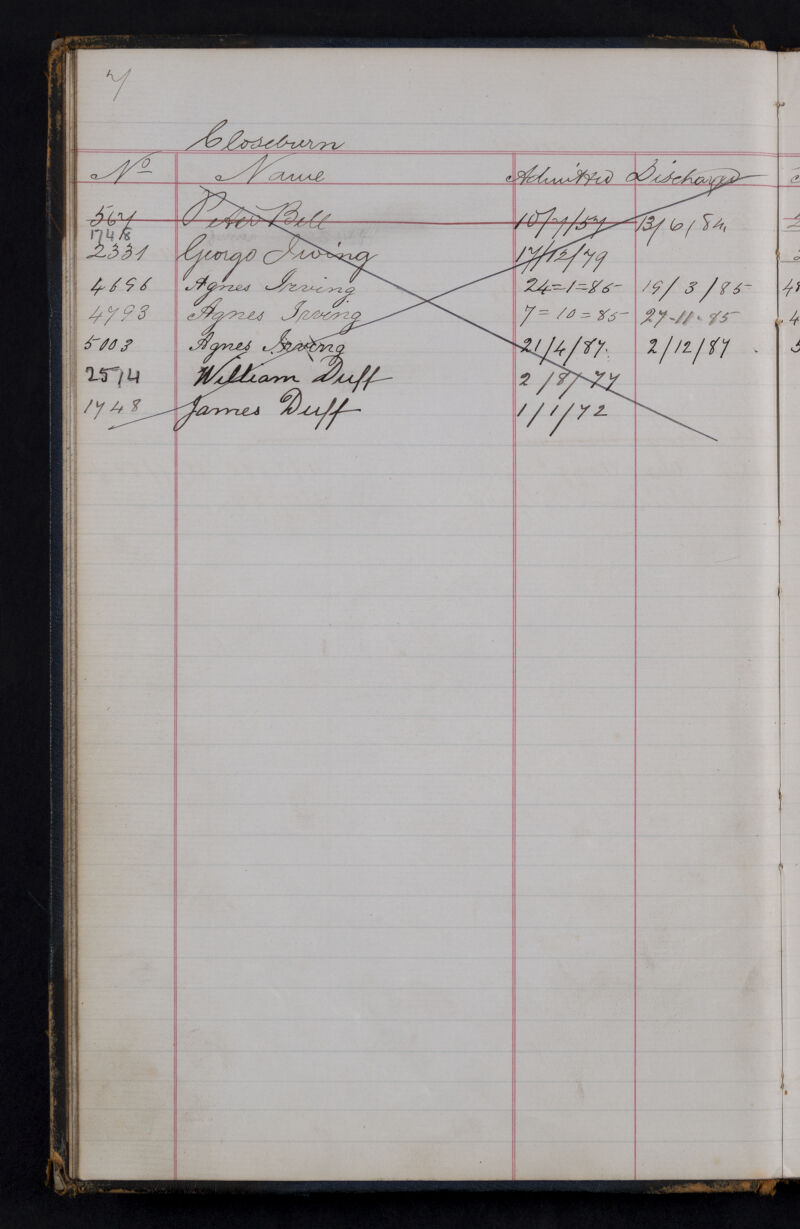 7
Closeburn
No Name Admitted Discharged
567 Peter Bell 10/7/57 13/6/84
1748
2331 George Irving 17/12/79
4696 Agnes Irving 24=1=85 19/3/85
4793 Agnes Irving 7=10=85 27-11-85
5003 Agnes Irving 21/4/87. 2/12/87
2514 William Duff 2/8/77
1748 James Duff 1/1/72